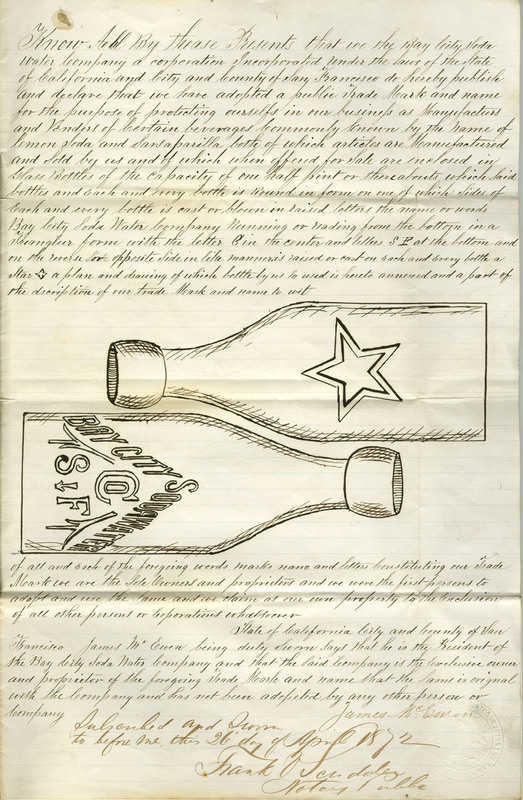 Know All By thease Presents that we the Bay City Soda
water Company a corporation Incorporated under the laws of the State
of California and City and County of San Francisco do hereby publish
and declare that we have adopted a public Trade Mark and name
for the purpose of protecting ourselfs in our business as Manufacturs
and Venders of Certain beverages Commonly known by the name of
Lemon Soda and Sarsaparilla both of which articles are Manufactured
and Sold by us and of which when offered for sale are enclosed in
Glass Bottles of the Capacity of one half pint or thereabouts which Said
bottles and Each and every bottle is Round in form on one of which Sides of
Each and every bottle is cast or blown in raised letters the name or words
Bay City Soda Water Company Running or reading from the bottom in a
Triangler form with the letter C in the center and letters S F at the bottom and
on the revers or opposite Side in like manner is raised or cast on Each and Every bottle a
Star a plan and drawing of which bottle by us so used is hereto annexed and a part of
the dscription of our trade Mark and name to wit
BAY CITY SODA WATER
C
S F
of all and Each of the foregoing words marks name and letters Constituting our Trade
Mark we are the Sole Owners and proprietors and we were the first persons to
adopt and use the Same and we claim as our own property to the Exclusion
of all other persons or Coperations whatsoever
State of California City and County of San
Francisco James McEwen being duly Sworn Says that he is the President of
the Bay City Soda Water Company and that the Said Company is the Exclusive owner
and proprietor of the foregoing Trade Mark and name that the Same is orignal
with the Company and has not been adopted by any other person or
Company
James McEwen
Subscribed and Sworn
to before me this 26 day of April 1872
Frank Scudder
Notary Public